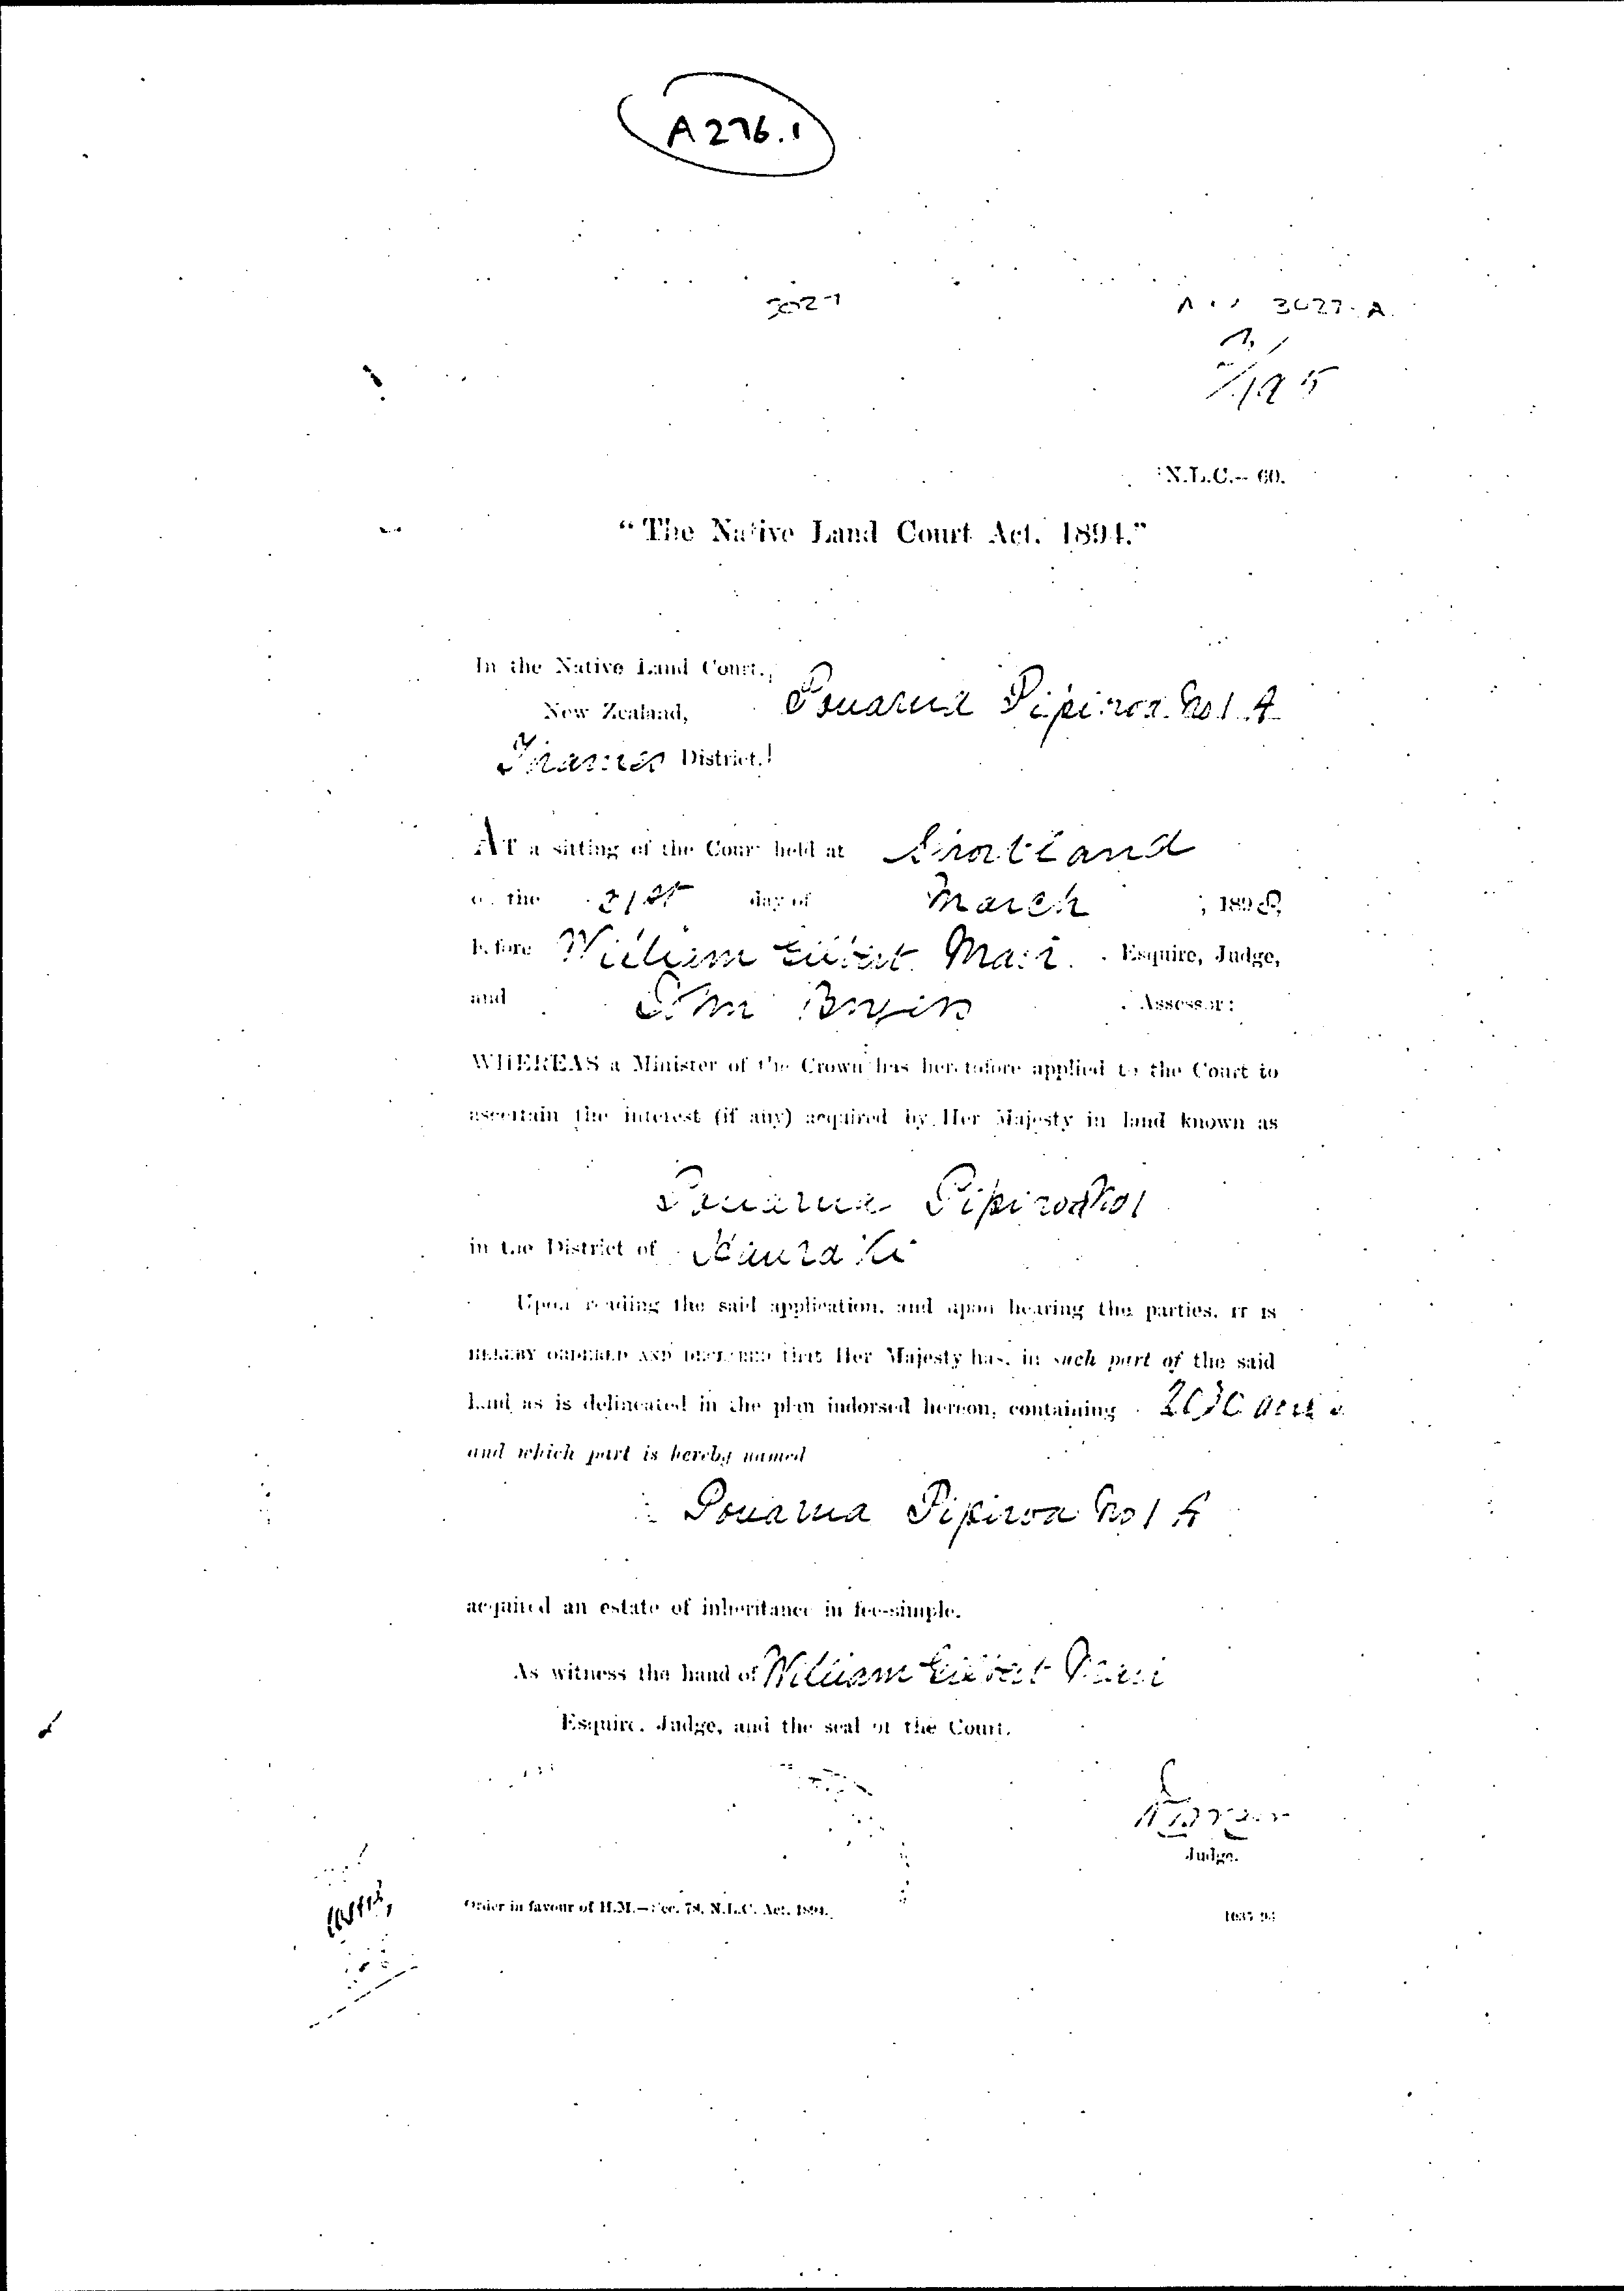 A276.1
3027
3027.A
N.L.C.—60.
“The Native Land Court Act, 1894.”
In the Native Land Court,
New Zealand,
Pouarua Pipiroa No 1 A
District.
AT a sitting of the Court held at
on the 21st day of March , 1898,
before William Gilbert Mair Esquire, Judge,
and Assessor:
WHEREAS a Minister of the Crown has heretofore applied to the Court to
ascertain the interest (if any) acquired by Her Majesty in land known as
Pouarua Pipiroa No 1
in the District of Hauraki
Upon reading the said application, and upon hearing the parties, IT IS
HEREBY ORDERED AND DECLARED that Her Majesty has, in such part of the said
land as is delineated in the plan indorsed hereon, containing acres
and which part is hereby named
Pouarua Pipiroa No 1 A
acquired an estate of inheritance in fee-simple.
As witness the hand of William Gilbert Mair
Esquire, Judge, and the seal of the Court.
Judge.
Order in favour of H.M.—Sec. 78, N.L.C. Act, 1894.